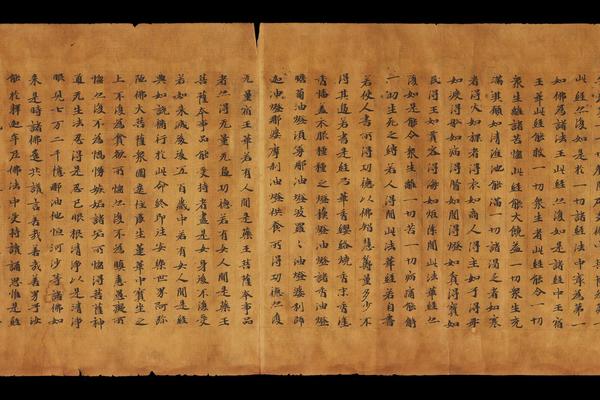 此經亦復如是於一切諸經法中最為第一
如佛為諸法王此經亦復如是諸經中王宿
王華此經能救一切衆生者此經能令一切
衆生離諸苦惱此經能大饒益一切衆生充
滿其願如清涼池能滿一切諸渴乏者如寒
者得火如裸者得衣如商人得主如子得母
如渡得船如病得醫如闇得燈如貧得寶如
民得王如賈客得海如炬除闇此法華經亦
復如是能令衆生離一切苦一切病痛能解
一切生死之縛若人得聞此法華經若自書
若使人書所得功德以佛智慧籌量多少不
得其邊若書是經卷華香纓絡燒香末香塗
香幡蓋衣服種種之燈蘇燈油燈諸香油燈
瞻蔔油燈須曼那油燈波羅羅油燈婆利師
迦油燈那婆摩利油燈供養所得功德亦復
无量宿王華若有人聞是藥王菩薩本事品
者亦得无量无邊功德若有女人聞是藥王
菩薩本事品能受持者盡是女身後不復受
若如來滅後後五百歲中若有女人聞是經
典如說脩行於此命終即往安樂世界阿彌
陀佛大菩薩衆圍遶住處生蓮華中寶座之
上不復為貪欲所惱亦復不為瞋恚愚癡所
惱亦復不為憍慢嫉妬諸垢所惱得菩薩神
通无生法忍得是忍已眼根清淨以是清淨
眼見七万二千億那油他恒河沙等諸佛如
來是時諸佛遙共讚言善哉善哉善男子汝
能於釋迦牟尼佛法中受持讀誦思惟是經